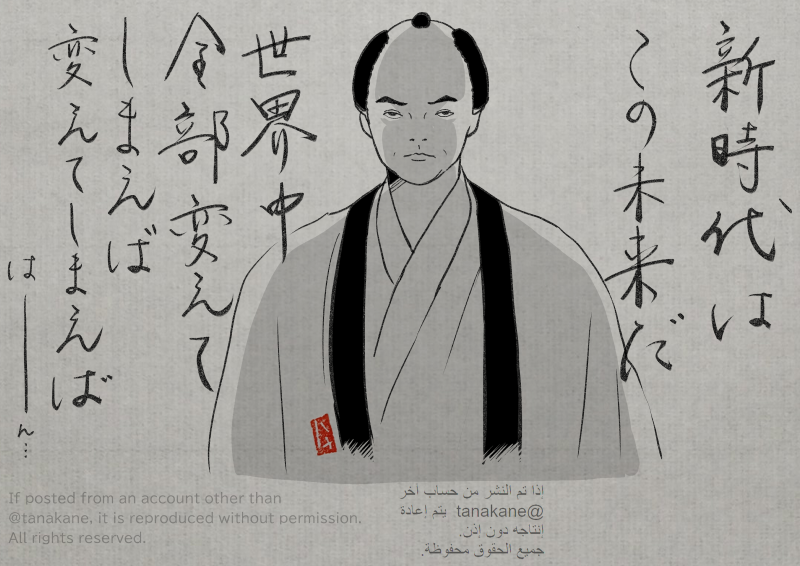 新時代は
この未来だ
世界中
全部変えて
しまえば
変えてしまえば
は――ん…
If posted from an account other than
@tanakane, it is reproduced without permission.
All rights reserved.
إذا تم النشر من حساب آخر
@tanakane يتم إعادة
انتاجه دون إذن.
جميع الحقوق محفوظة.